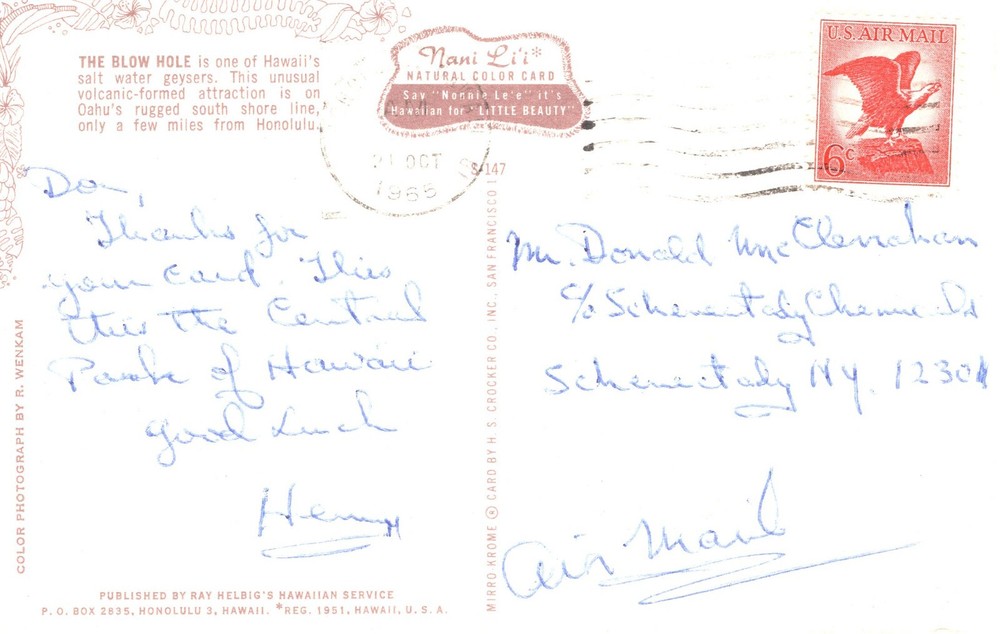 THE BLOW HOLE is one of Hawaii's
salt water geysers. This unusual
volcanic-formed attraction is on
Oahu's rugged south shore line,
only a few miles from Honolulu.
Nani Li'i*
NATURAL COLOR CARD
Say "Nonnie Le'e" it's
Hawaiian for "LITTLE BEAUTY"
U.S. AIR MAIL
6c
21 OCT
1965
S-147
Don,
Thanks for
your card. This
this the Central
Park of Hawaii
Good Luck
Henry
Mr. Donald McClenahan
c/o Schenectady Chemicals
Schenectady NY. 12301
Air Mail
COLOR PHOTOGRAPH BY R. WENKAM
MIRRO-KROME ® CARD BY H. S. CROCKER CO., INC., SAN FRANCISCO 1
PUBLISHED BY RAY HELBIG'S HAWAIIAN SERVICE
P. O. BOX 2835, HONOLULU 3, HAWAII. *REG. 1951, HAWAII, U. S. A.